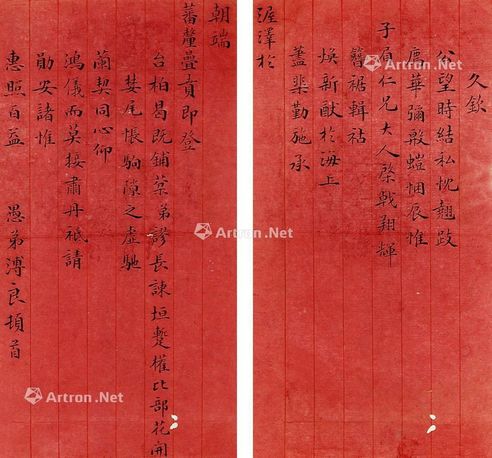 久欽
公望時結私忱翹跂
華彌敦悃辰惟
子眉仁兄大人棨戟翔輝
簪裾輯祜
煥新猷於海上
藎棐勤施承
渥澤於
朝端
蕃釐疊貢即登
台柏曷既鋪棻弟謬長諫垣蹔權比部花開
婪尾悵駒隙之虛馳
蘭契同心仰
鴻儀而莫接肅丹祗請
勛安諸惟
惠照百益 愚弟溥良頓首
Artron.Net
Artron.Net
Artron.Net
Artron.Net